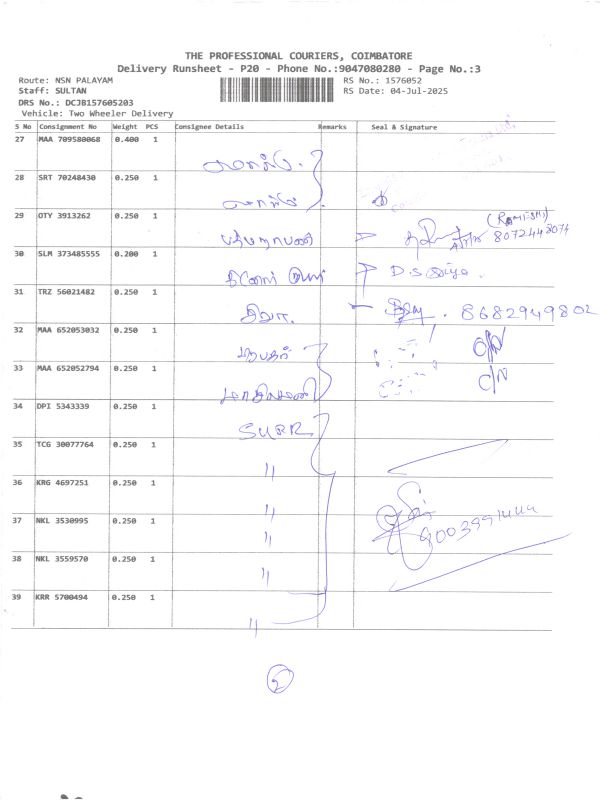 THE PROFESSIONAL COURIERS, COIMBATORE
Delivery Runsheet - P20 - Phone No.:9047080280 - Page No.:3
Route: NSN PALAYAM
RS No.: 1576052
Staff: SULTAN
RS Date: 04-Jul-2025
DRS No.: DCJB157605203
Vehicle: Two Wheeler Delivery
S No Consignment No Weight PCS Consignee Details Remarks Seal & Signature
27 MAA 709580068 0.400 1
28 SRT 70248430 0.250 1
29 OTY 3913262 0.250 1
8072448074
30 SLM 373485555 0.200 1
31 TRZ 56021482 0.250 1
சிவா. 8682949802
32 MAA 652053032 0.250 1
33 MAA 652052794 0.250 1
34 DPI 5343339 0.250 1
35 TCG 30077764 0.250 1
"
36 KRG 4697251 0.250 1
"
37 NKL 3530995 0.250 1
"
38 NKL 3559570 0.250 1
"
39 KRR 5700494 0.250 1
"
2